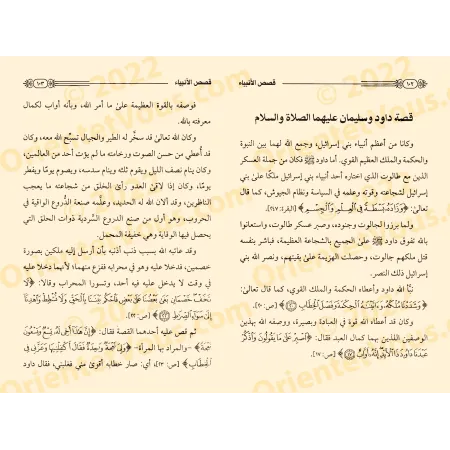 ١٠٢
قصص الأنبياء
قصة داود وسليمان عليهما الصلاة والسلام
وكانا من أعظم أنبياء بني إسرائيل، وجمع الله لهما بين النبوة
والحكمة والملك العظيم القوي. أما داود ﷺ فكان من جملة العسكر
الذين مع طالوت الذي اختاره أحد أنبياء بني إسرائيل ملكًا على بني
إسرائيل لشجاعته وقوته وعلمه في السياسة ونظام الجيوش، كما قال
تعالى: ﴿وَزَادَهُ بَسْطَةً فِي الْعِلْمِ وَالْجِسْمِ﴾ [البقرة: ٢٤٧].
ولما برزوا لجالوت وجنوده، وصبر عسكر طالوت، واستعانوا
بالله تفوق داود ﷺ على الجميع بالشجاعة العظيمة، فباشر بنفسه
قتل ملكهم جالوت، وحصلت الهزيمة على بقيتهم، ونصر الله بني
إسرائيل ذلك النصر.
نبَّأ الله داود وأعطاه الحكمة والملك القوي، كما قال تعالى:
﴿وَشَدَدْنَا مُلْكَهُ وَآتَيْنَاهُ الْحِكْمَةَ وَفَصْلَ الْخِطَابِ﴾ [ص: ٢٠].
وكان قد أعطاه الله قوة في العبادة وبصيرة، ووصفه الله بهذين
الوصفين اللذين بهما كمال العبد فقال: ﴿اصْبِرْ عَلَى مَا يَقُولُونَ وَاذْكُرْ
عَبْدَنَا دَاوُودَ ذَا الْأَيْدِ إِنَّهُ أَوَّابٌ﴾ [ص: ١٧].
قصص الأنبياء
١٠٣
فوصفه بالقوة العظيمة على ما أمر الله، وبأنه أواب لكمال
معرفته بالله.
وكان الله تعالى قد سخَّر له الطير والجبال تسبّح الله معه، وكان
قد أُعطي من حسن الصوت ورخامته ما لم يؤت أحد من العالمين،
وكان ينام نصف الليل ويقوم ثلثه وينام سدسه، ويصوم يومًا ويفطر
يومًا، وكان إذا لاقى العدو رأى الخلق من شجاعته ما يعجب
الناظرين، وقد ألان الله له الحديد، وعلَّمه صنعة الدروع الواقية في
الحروب، وهو أول من صنع الدروع السَّردية ذوات الحلق التي
يحصل فيها الوقاية وهي خفيفة المحمل.
وقد عاتبه الله بسبب ذنب أذنبه بأن أرسل إليه ملكين بصورة
خصمين، فدخلا عليه وهو في محرابه ففزع منهما؛ لأنهما دخلا عليه
في وقت لا يدخل عليه فيه أحد، وتسورا المحراب وقالا: ﴿لَا
تَخَفْ خَصْمَانِ بَغَى بَعْضُنَا عَلَى بَعْضٍ فَاحْكُمْ بَيْنَنَا بِالْحَقِّ وَلَا تُشْطِطْ وَاهْدِنَا
إِلَى سَوَاءِ الصِّرَاطِ﴾ [ص: ٢٢].
ثم قص عليه أحدهما القصة فقال: ﴿إِنَّ هَذَا أَخِي لَهُ تِسْعٌ وَتِسْعُونَ
نَعْجَةً﴾ -والمراد بها المرأة- ﴿وَلِيَ نَعْجَةٌ وَاحِدَةٌ فَقَالَ أَكْفِلْنِيهَا وَعَزَّنِي فِي
الْخِطَابِ﴾ [ص: ٢٣]، أي: صار خطابه أقوى مني فغلبني، فقال داود